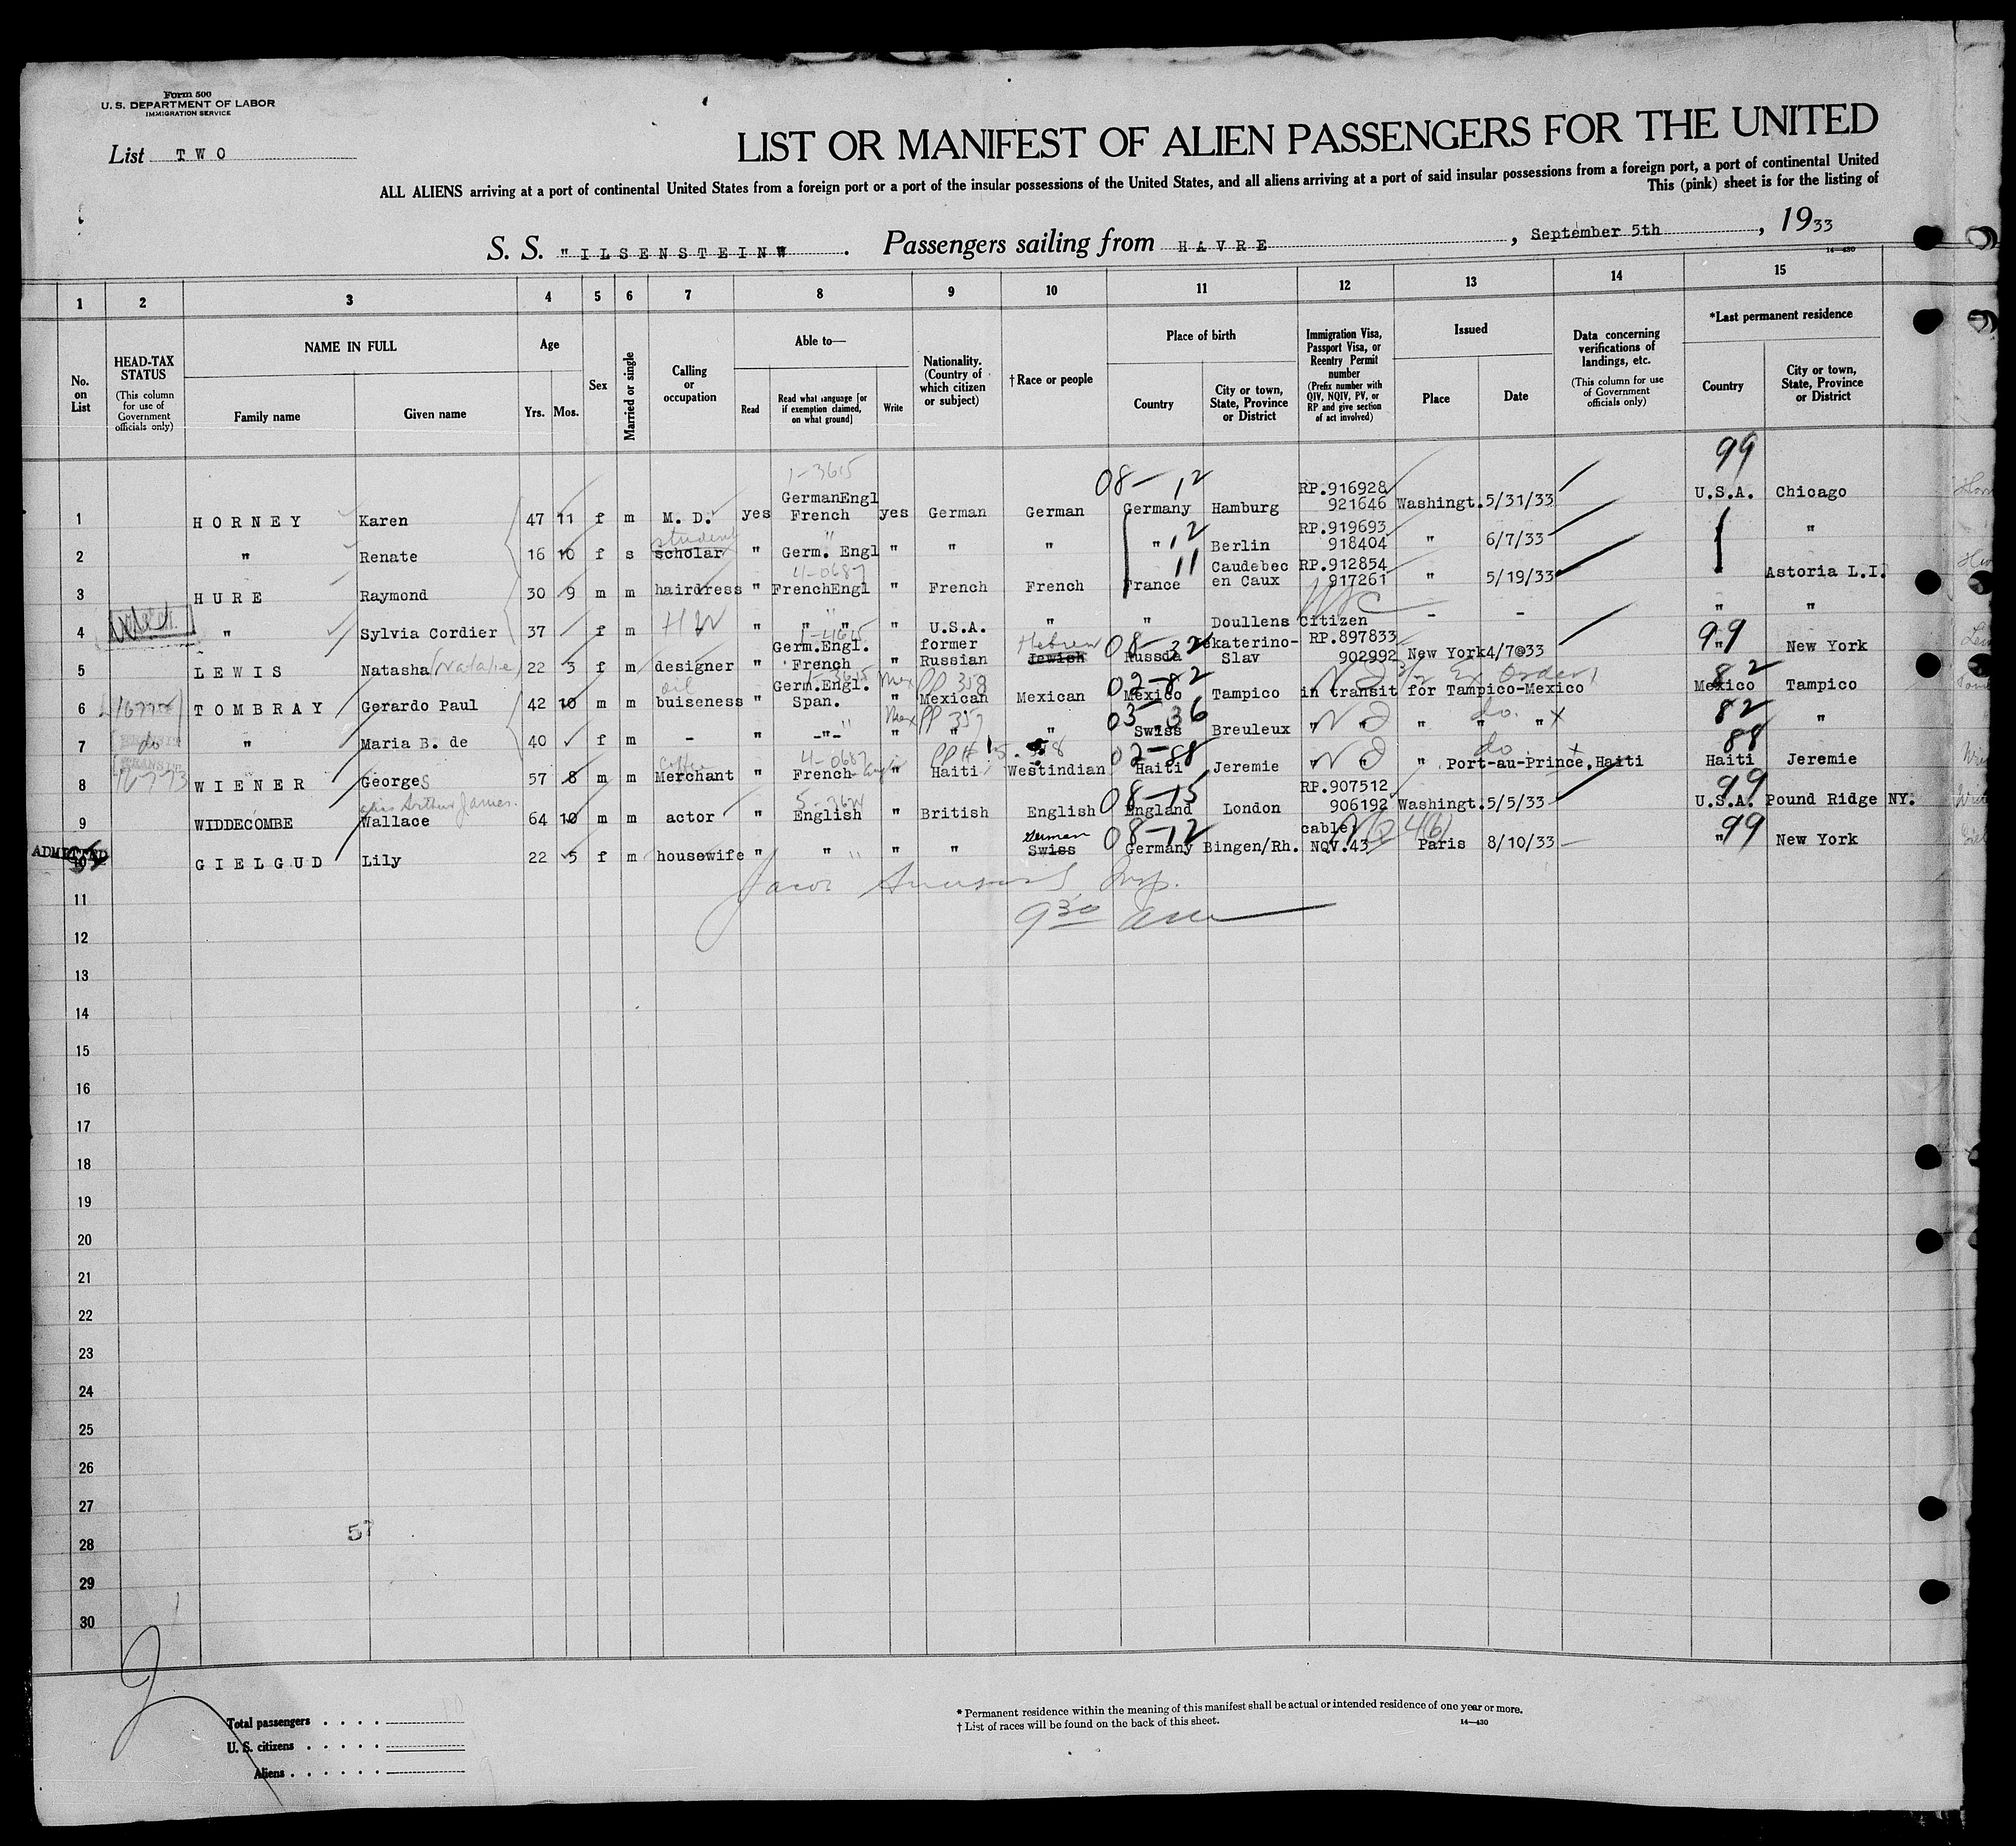 Form 500
U. S. DEPARTMENT OF LABOR
IMMIGRATION SERVICE
List TWO
LIST OR MANIFEST OF ALIEN PASSENGERS FOR THE UNITED
ALL ALIENS arriving at a port of continental United States from a foreign port or a port of the insular possessions of the United States, and all aliens arriving at a port of said insular possessions from a foreign port, a port of continental United
This (pink) sheet is for the listing of
S. S. "ILSENSTEINW . Passengers sailing from HAVRE , September 5th , 1933
14—430
1 2 3 4 5 6 7 8 9 10 11 12 13 14 15
No. on List
HEAD-TAX STATUS (This column for use of Government officials only)
NAME IN FULL Family name Given name
Age Yrs. Mos.
Sex
Married or single
Calling or occupation
Able to— Read Read what language [or if exemption claimed, on what ground] Write
Nationality. (Country of which citizen or subject)
†Race or people
Place of birth Country City or town, State, Province or District
Immigration Visa, Passport Visa, or Reentry Permit number (Prefix number with QIV, NQIV, PV, or RP and give section of act involved)
Issued Place Date
Data concerning verifications of landings, etc. (This column for use of Government officials only)
*Last permanent residence Country City or town, State, Province or District
1-3615 08-12 99
1 HORNEY Karen 47 11 f m M. D. yes GermanEngl French yes German German Germany Hamburg RP.916928 921646 Washingt. 5/31/33 U.S.A. Chicago
2 " Renate 16 10 f s scholar student " Germ. Engl " " " " 12 Berlin RP.919693 918404 " 6/7/33 "
3 HURE Raymond 30 9 m m hairdress " 4-0687 FrenchEngl " French French 11 France Caudebec en Caux RP.912854 917261 " 5/19/33 Astoria L.I.
4 " Sylvia Cordier 37 f m HW " " " " U.S.A. " " Doullens Citizen - - " "
5 LEWIS Natasha (Natalie) 22 3 f m designer " Germ.Engl. French " former Russian Jewish Hebrew 08-32 Russda Ekaterino-Slav RP.897833 902992 New York 4/7@33 99 " New York
6 TOMBRAY Gerardo Paul 42 10 m m oil buiseness " 1-3615 Germ.Engl. Span. " Mex PP 358 Mexican Mexican 02-82 Mexico Tampico in transit for Tampico-Mexico ND 3/2 Ex Order 82 Mexico Tampico
7 do " Maria B. de 40 f m - " -"- " Mex PP 357 " " 03-36 Swiss Breuleux " " " " " ND do. x 82 "
8 TRANSIT WIENER Georges 57 8 m m Coffee Merchant " 4-0687 French " Haiti Westindian 02-88 Haiti Jeremie " " " Port-au-Prince, Haiti ND do x 88 Haiti Jeremie
9 WIDDECOMBE Wallace alias Arthur James. 64 10 m m actor " English " British English 08-15 England London RP.907512 906192 Washingt. 5/5/33 99 U.S.A. Pound Ridge NY.
ADMITTED 10 GIELGUD Lily 22 5 f m housewife " " " " Swiss German 08-12 Germany Bingen/Rh. cable NQV.43 4(b) Paris 8/10/33 99 " New York
11
9 30 am
12
13
14
15
16
17
18
19
20
21
22
23
24
25
26
27
57
28
29
30
Total passengers
U. S. citizens
Aliens
* Permanent residence within the meaning of this manifest shall be actual or intended residence of one year or more.
† List of races will be found on the back of this sheet.
14—430